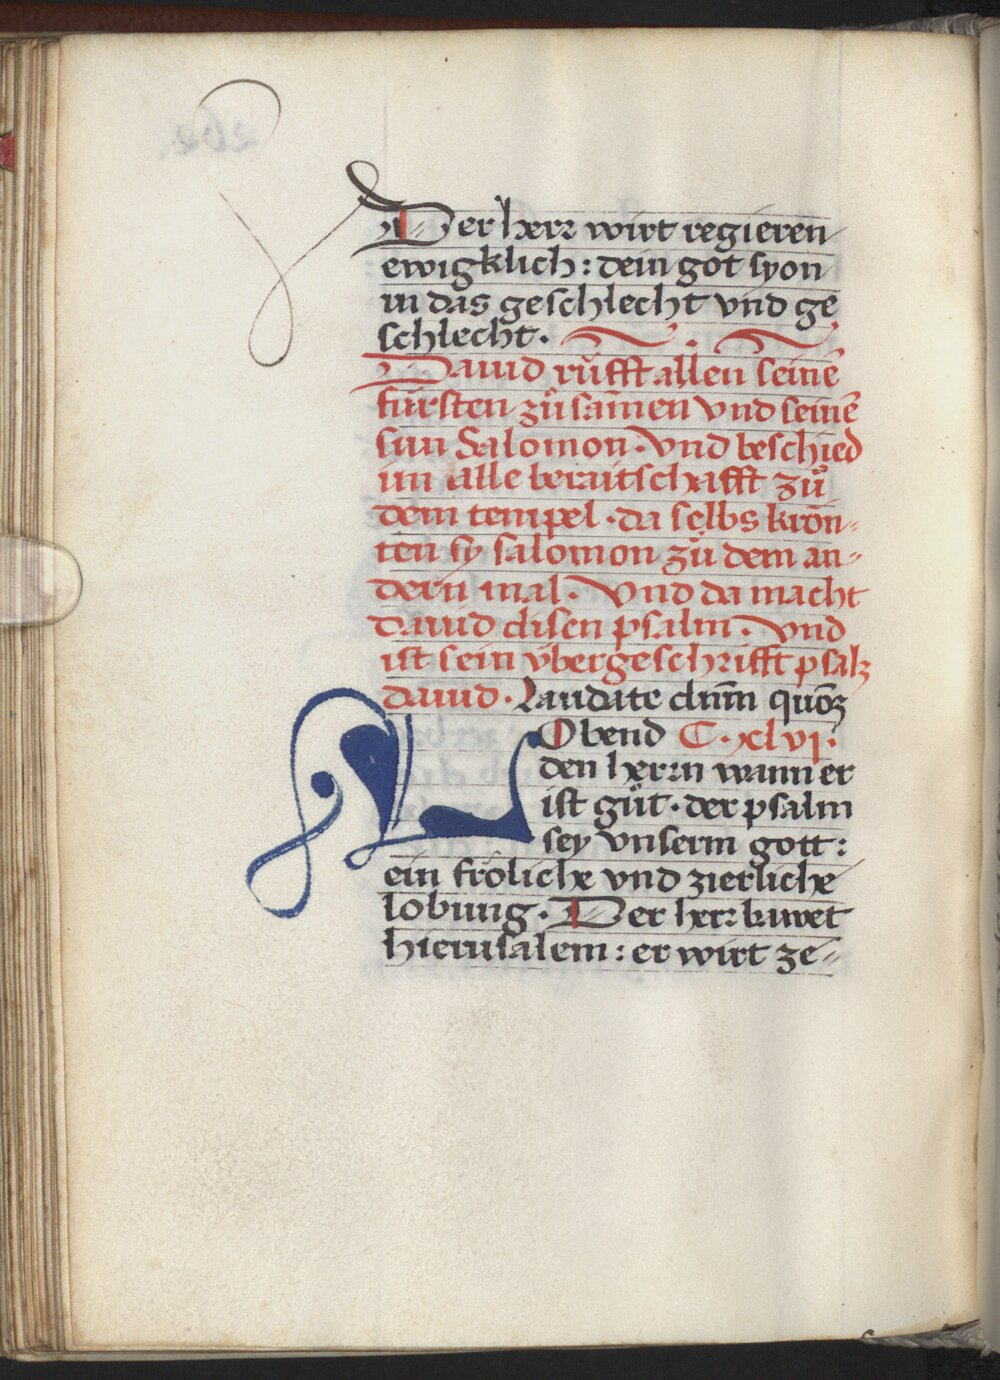 Der herr wirt regieren
ewigklich : dein got syon
in das geschlecht vnd ge
schlecht .
Dauid rüfft allen seinē
fürsten zů samen vnd seinē
sun Salomon . Vnd beschied
im alle beraitschafft zů
dem tempel . da selbs krön-
ten sy salomon zů dem an-
dern mal . Vnd da macht
dauid disen psalm . Vnd
ist sein v̈bergeschrifft psalm
dauid . Laudate dn̄m quōz
LObend C . xlvi .
den herrn wann er
ist gůt . der psalm
sey vnserm gott :
ein fröliche vnd zierliche
lobung . Der herr bawet
hierusalem : er wirt ze-